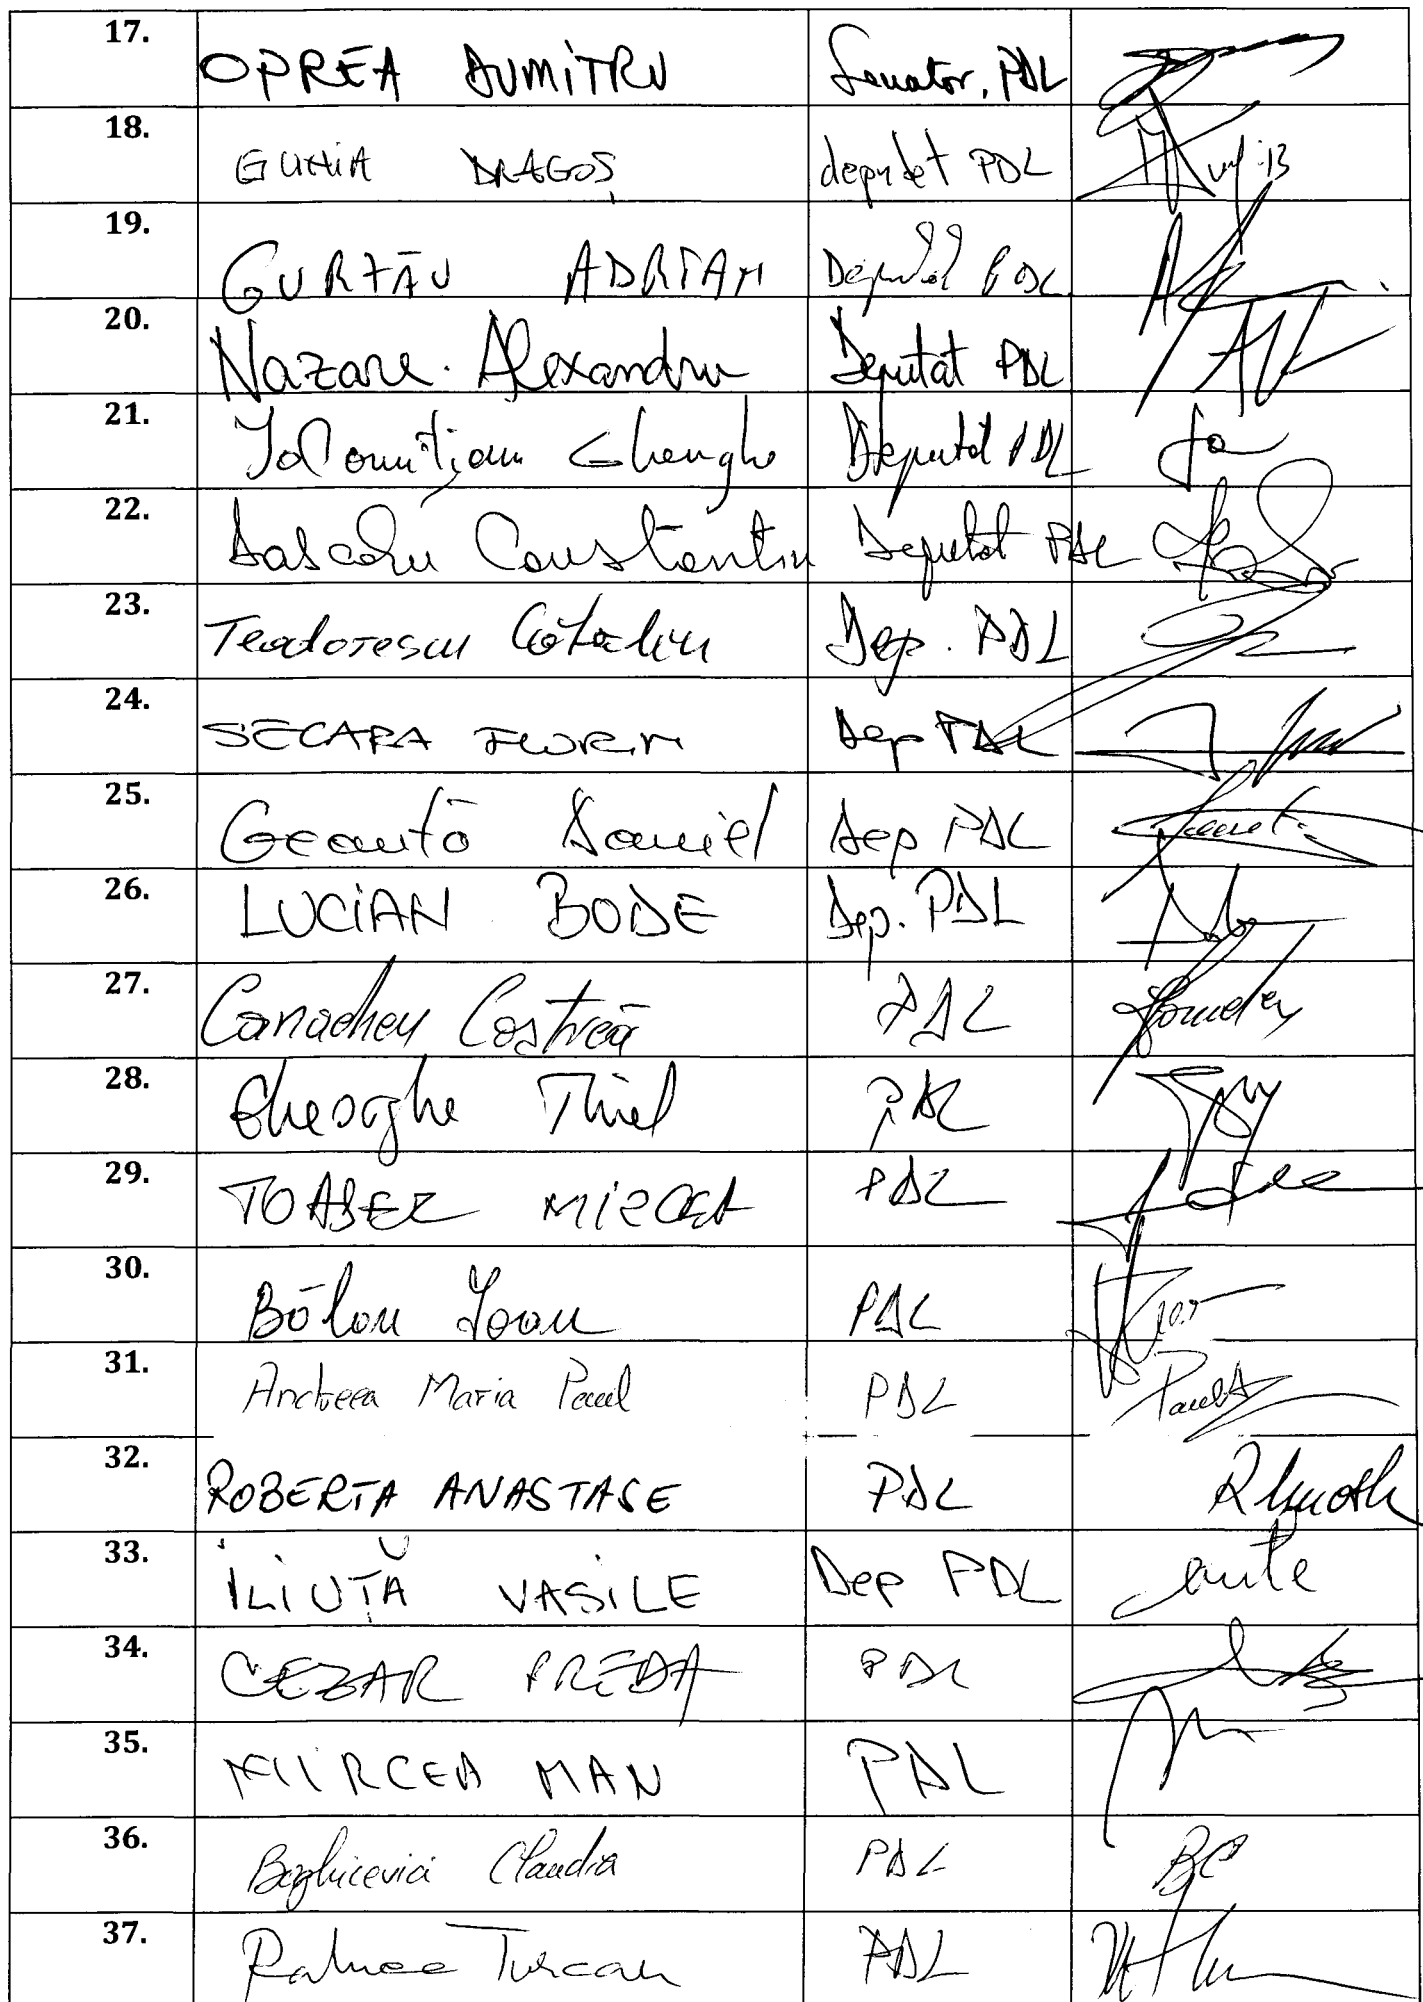 17. OPREA DUMITRU Senator, PDL
18. GUNIA DRAGOȘ deputat PDL
19. GURZĂU ADRIAN Deputat PDL
20. Nazare Alexandru Deputat PDL
21. Ialomițianu Gheorghe Deputat PDL
22. Dascălu Constantin Deputat PDL
23. Teodorescu Cătălin Dep. PDL
24. SECARA FLORIN Dep PDL
25. Geantă Daniel Dep PDL
26. LUCIAN BODE Dep. PDL
27. Canacheu Costică PDL
28. Gheorghe Thiel PDL
29. TOADER MIRCEA PDL
30. Bălan Ioan PDL
31. Andreea Maria Paul PDL
32. ROBERTA ANASTASE PDL
33. ILIUȚĂ VASILE Dep PDL
34. CEZAR PREDA PDL
35. MIIRCEA MAN PDL
36. Boghicevici Claudia PDL BC
37. Raluca Turcan PDL